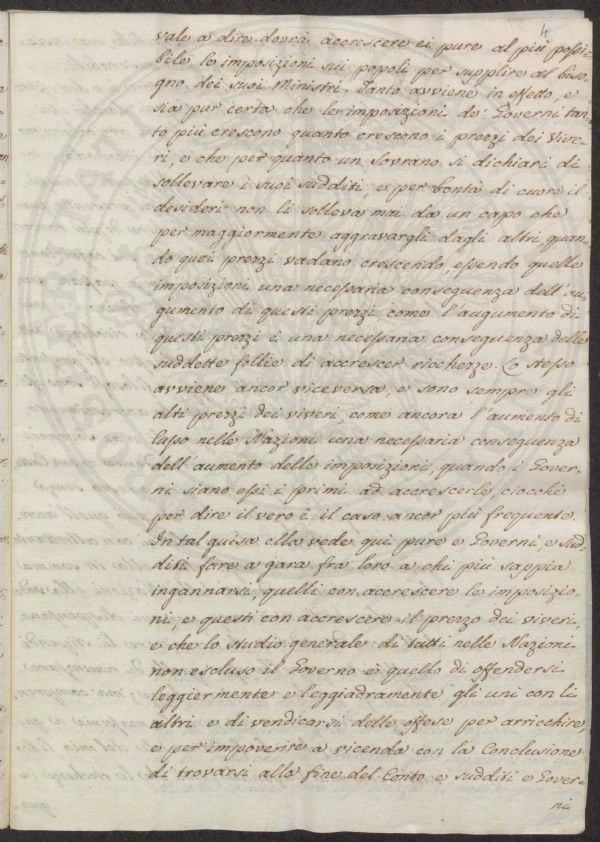 4
vale a dire dovrà accrescere ei pure al più possi-
bile le imposizioni sui popoli per supplire al biso-
gno dei suoi Ministri. Tanto avviene in effetto, e
sia pur certa che le imposizioni de' Governi tan-
to più crescono quanto crescono i prezzi dei Vive-
ri, e che per quanto un Sovrano si dichiari di
sollevare i suoi sudditi, e per bontà di cuore il
desideri non li solleva mai da un capo che
per maggiormente aggravargli dagli altri quan-
do quei prezzi vadano crescendo, essendo quelle
imposizioni una necessaria conseguenza dell'au-
gumento di questi prezzi come l'augumento di
questi prezzi è una necessaria conseguenza delle
suddette follie di accrescer ricchezze. Lo stesso
avviene ancor viceversa, e sono sempre gli
alti prezzi dei viveri, come ancora l'aumento di
lusso nelle Nazioni una necessaria conseguenza
dell'aumento delle imposizioni, quando i Gover-
ni siano essi i primi ad accrescerle, ciocchè
per dire il vero è il caso ancor più frequente.
In tal guisa ella vede qui pure e Governi, e sud-
diti fare a gara fra loro a chi più sappia
ingannarsi, quelli con accrescere le imposizio-
ni, e questi con accrescere il prezzo dei viveri,
e che lo studio generale di tutti nelle Nazioni
non escluso il Governo è quello di offendersi
leggiermente e leggiadramente gli uni con li
altri e di vendicarsi delle offese per arricchire,
e per impoverire a vicenda con la Conclusione
di trovarsi alla fine del Conto e sudditi e Gover-
ni